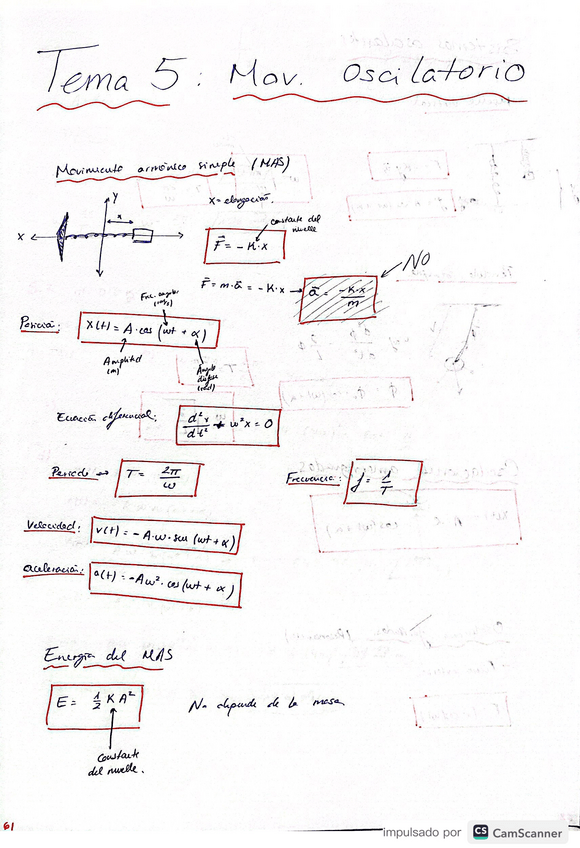 Tema 5: Mov. oscilatorio
Movimiento armónico simple (MAS)
Y
x
X
X = elongación.
constante del muelle
F⃗ = -K·x
NO
F⃗ = m·a⃗ = -K·x → a⃗ = -K·x/m
Frec. angular (rad/s)
Posición: X(t) = A·cos(wt + α)
Amplitud (m)
Angulo desfase (rad)
Ecuación diferencial: d²x/dt² + w²x = 0
Periodo → T = 2π/w
Frecuencia: f = 1/T
Velocidad: v(t) = -A·w·sen(wt + α)
aceleración: a(t) = -Aw²·cos(wt + α)
Energía del MAS
E = 1/2 K A²
No depende de la masa
Constante del muelle.
61
impulsado por CS CamScanner